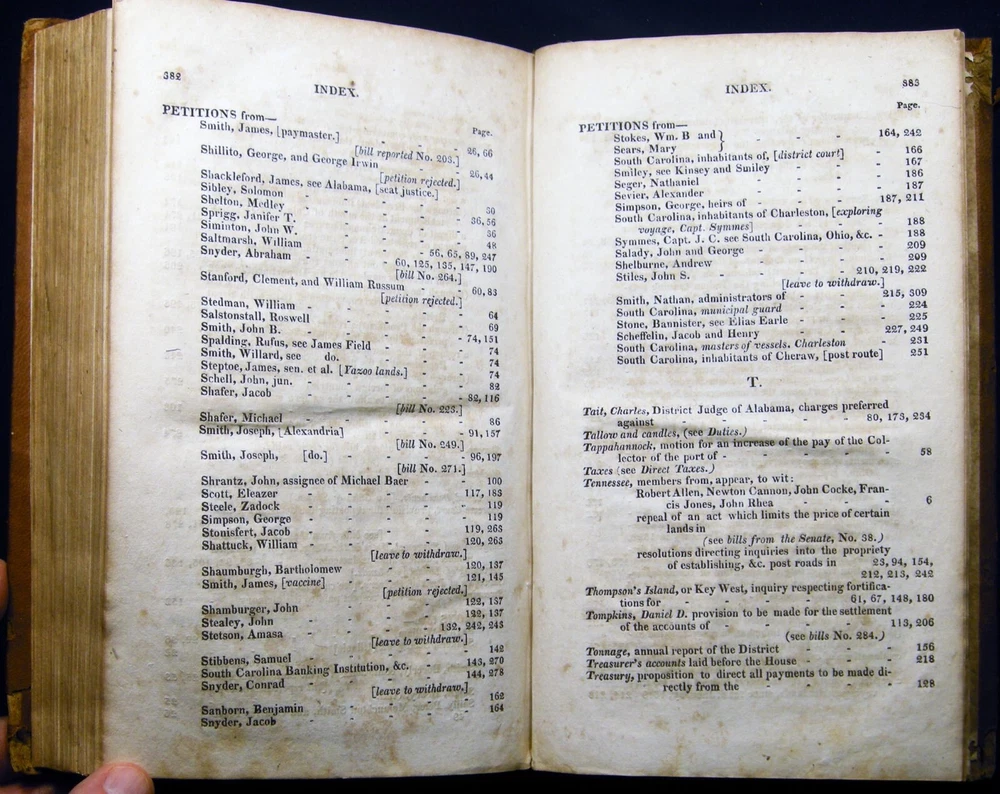 382
INDEX.
PETITIONS from—
Page.
Smith, James, [paymaster.] 26, 66
[bill reported No. 203.]
Shillito, George, and George Irwin 26, 44
[petition rejected.]
Shackleford, James, see Alabama, [seat justice.]
Sibley, Solomon - - - - 30
Shelton, Medley - - - - 36, 56
Sprigg, Janifer T. - - - - 36
Siminton, John W. - - - - 48
Saltmarsh, William - - - 56, 65, 89, 247
Snyder, Abraham - - 60, 125, 135, 147, 190
[bill No. 264.]
Stanford, Clement, and William Russum - 60, 83
[petition rejected.]
Stedman, William - - - - 64
Salstonstall, Roswell - - - - 69
Smith, John B. - - - - 74, 151
Spalding, Rufus, see James Field - - - 74
Smith, Willard, see do. - - - 74
Steptoe, James, sen. et al. [Yazoo lands.] - - 74
Schell, John, jun. - - - - 82
Shafer, Jacob - - - - 82, 116
[bill No. 223.]
Shafer, Michael - - - - 86
Smith, Joseph, [Alexandria] - - - 91, 157
[bill No. 249.]
Smith, Joseph, [do.] - - - 96, 197
[bill No. 271.]
Shrantz, John, assignee of Michael Baer - - 100
Scott, Eleazer - - - - 117, 183
Steele, Zadock - - - - 119
Simpson, George - - - - 119
Stonisfert, Jacob - - - - 119, 263
Shattuck, William - - - - 120, 263
[leave to withdraw.]
Shaumburgh, Bartholomew - - - 120, 137
Smith, James, [vaccine] - - - 121, 145
[petition rejected.]
Shamburger, John - - - - 122, 137
Stealey, John - - - - 122, 137
Stetson, Amasa - - - 132, 242, 243
[leave to withdraw.]
Stibbens, Samuel - - - - 142
South Carolina Banking Institution, &c. - 143, 270
Snyder, Conrad - - - - 144, 278
[leave to withdraw.]
Sanborn, Benjamin - - - - 162
Snyder, Jacob - - - - 164
INDEX. 383
Page.
PETITIONS from—
Stokes, Wm. B and } - - - 164, 242
Sears, Mary }
South Carolina, inhabitants of, [district court] - 166
Smiley, see Kinsey and Smiley - - - 167
Seger, Nathaniel - - - - 186
Sevier, Alexander - - - - 187
Simpson, George, heirs of - - - 187, 211
South Carolina, inhabitants of Charleston, [exploring
voyage, Capt. Symmes] - - - 188
Symmes, Capt. J. C. see South Carolina, Ohio, &c. - 188
Salady, John and George - - - 209
Shelburne, Andrew - - - - 209
Stiles, John S. - - - - 210, 219, 222
[leave to withdraw.]
Smith, Nathan, administrators of - - 215, 309
South Carolina, municipal guard - - - 224
Stone, Bannister, see Elias Earle - - - 225
Scheffelin, Jacob and Henry - - - 227, 249
South Carolina, masters of vessels, Charleston - 231
South Carolina, inhabitants of Cheraw, [post route] 251
T.
Tait, Charles, District Judge of Alabama, charges preferred
against - - - - 80, 173, 234
Tallow and candles, (see Duties.)
Tappahannock, motion for an increase of the pay of the Col-
lector of the port of - - - - 58
Taxes (see Direct Taxes.)
Tennessee, members from, appear, to wit:
Robert Allen, Newton Cannon, John Cocke, Fran-
cis Jones, John Rhea - - - 6
repeal of an act which limits the price of certain
lands in
(see bills from the Senate, No. 38.)
resolutions directing inquiries into the propriety
of establishing, &c. post roads in 23, 94, 154,
212, 213, 242
Thompson's Island, or Key West, inquiry respecting fortifica-
tions for - - - 61, 67, 148, 180
Tompkins, Daniel D. provision to be made for the settlement
of the accounts of - - - 113, 206
(see bills No. 284.)
Tonnage, annual report of the District - - - 156
Treasurer's accounts laid before the House - - - 218
Treasury, proposition to direct all payments to be made di-
rectly from the - - - - 128